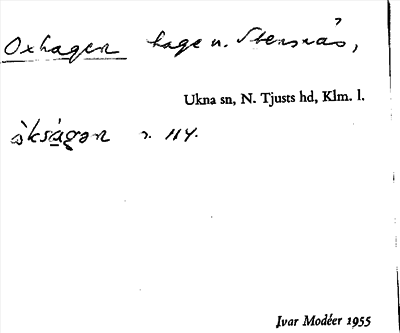 Oxhagen hage u. Stensnäs,
Ukna sn, N. Tjusts hd, Klm. l.
s. 114.
Ivar Modéer 1955